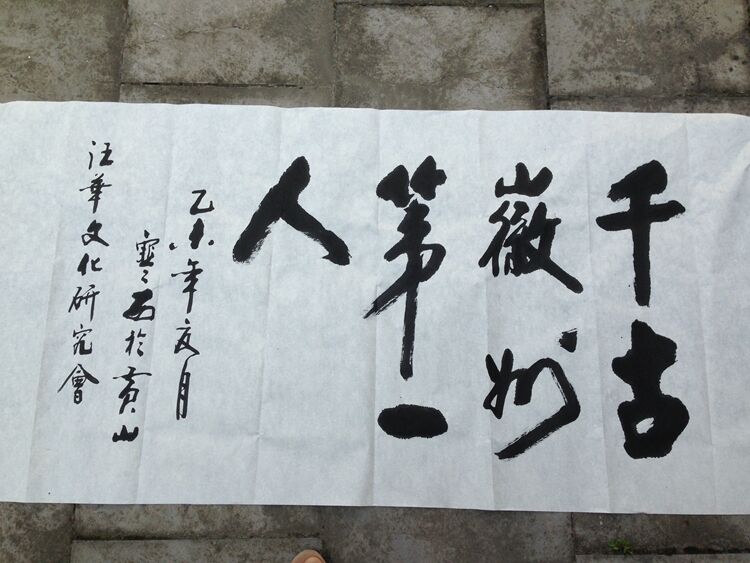 千古
徽州
第一
人
乙未年夏月
於黄山
汪華文化研究會